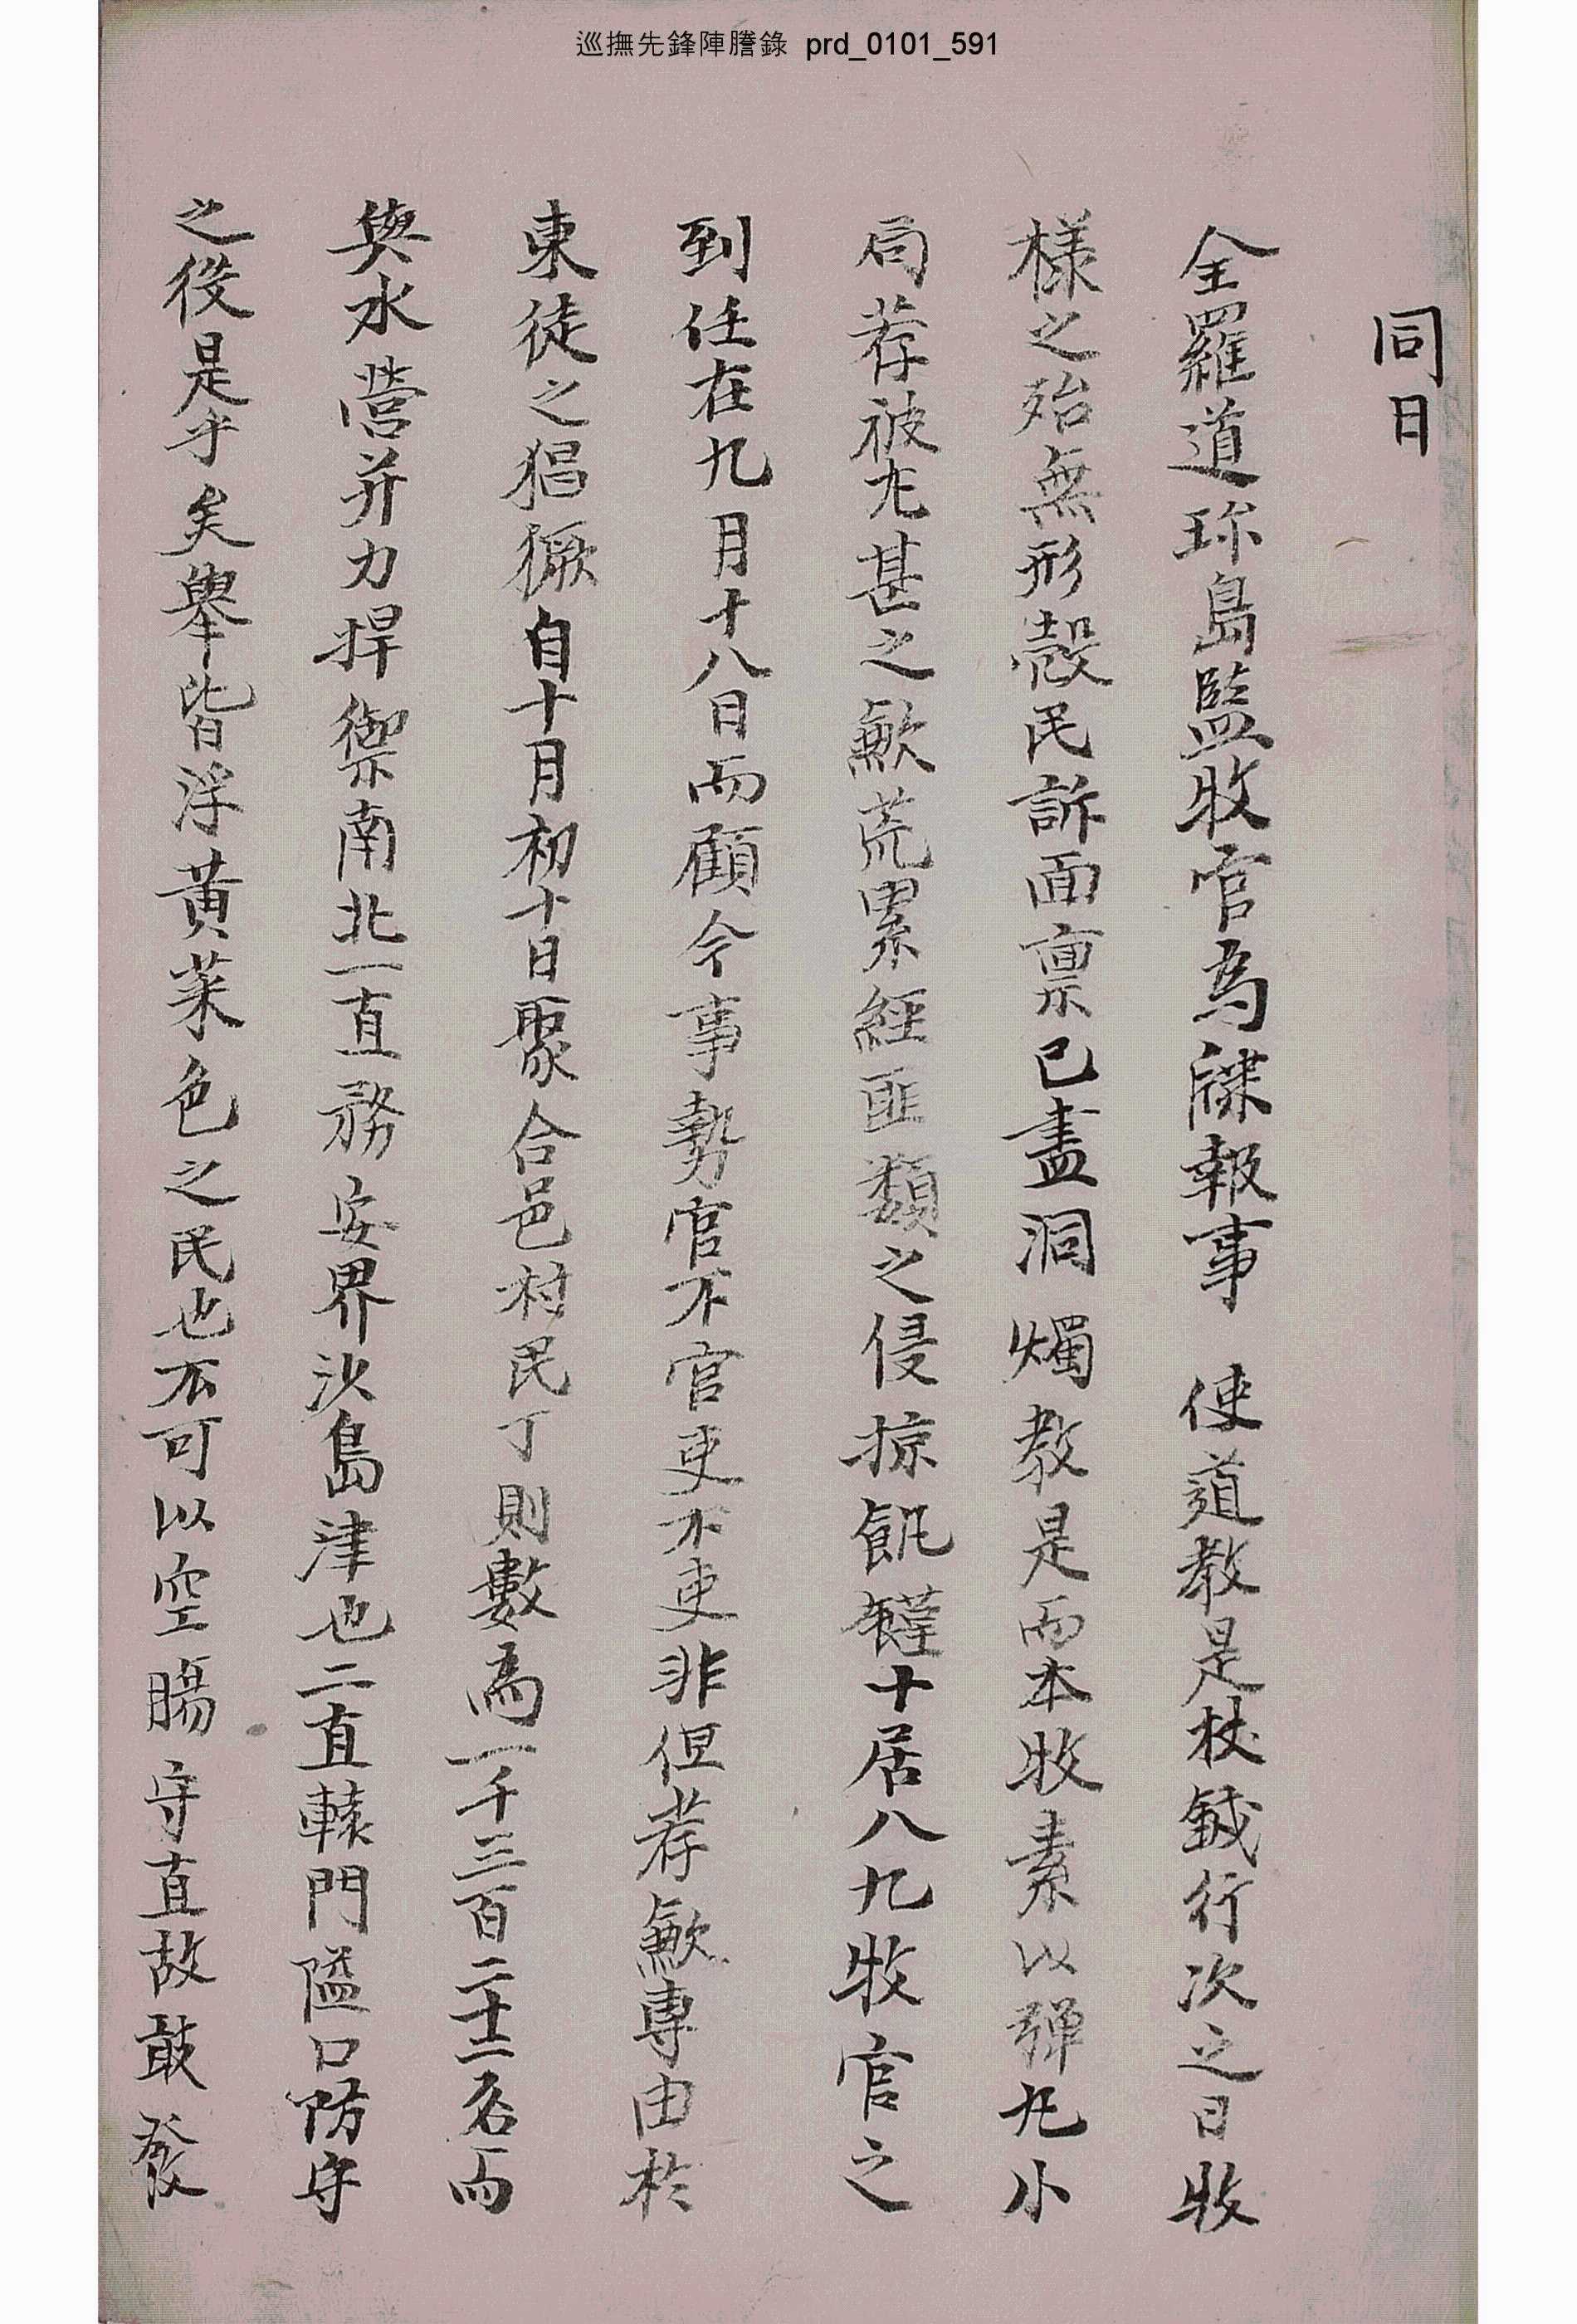 巡撫先鋒陣謄錄 prd_0101_591
同日
全羅道珎島監牧官爲牒報事 使道敎是杖鉞行次之日牧
樣之殆無形殼民訴面禀已盡洞燭敎是而本牧素以彈丸小
局荐被尤甚之歉荒累經匪類之侵掠飢饉十居八九牧官之
到任在九月十八日而顧今事勢官不官吏不吏非但荐歉專由於
東徒之猖獗自十月初十日聚合邑村民丁則數爲一千三百二十二名而
與水營并力捍禦南北一直務安界沙島津也二直轅門隘口防守
之役是乎矣擧皆浮黃菜色之民也不可以空膓守直故敢發